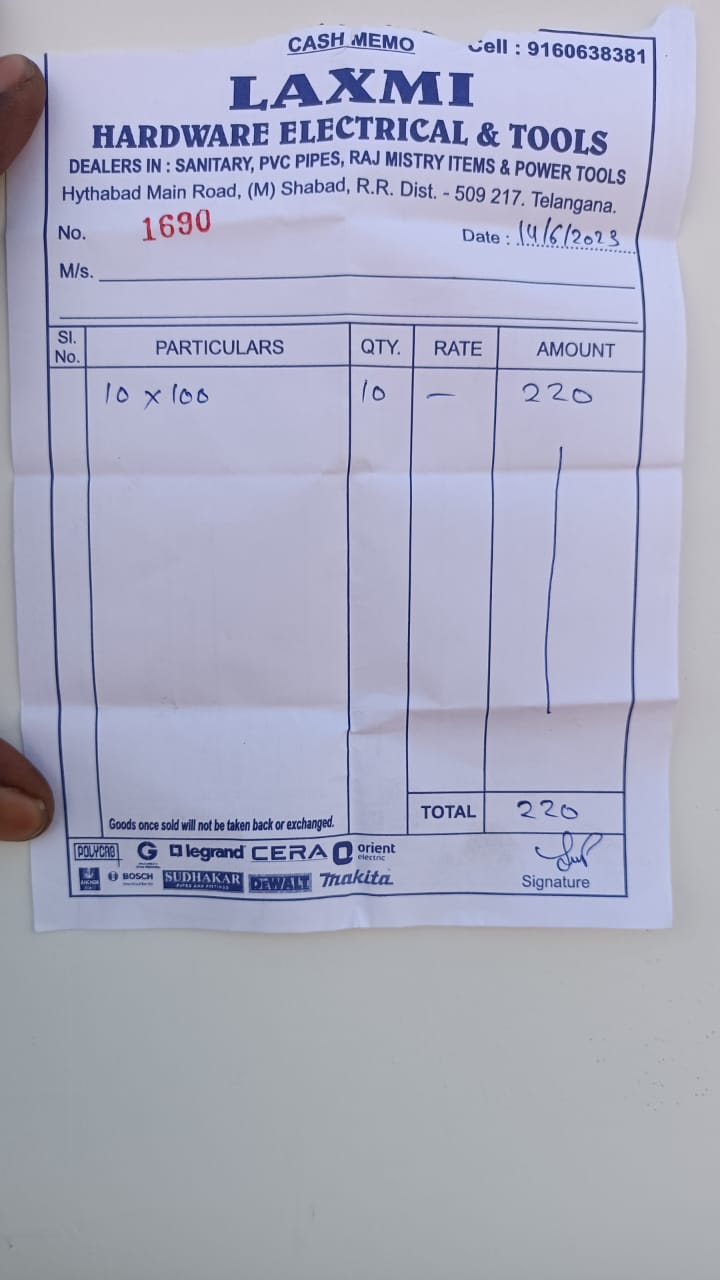 CASH MEMO Cell : 9160638381
LAXMI
HARDWARE ELECTRICAL & TOOLS
DEALERS IN : SANITARY, PVC PIPES, RAJ MISTRY ITEMS & POWER TOOLS
Hythabad Main Road, (M) Shabad, R.R. Dist. - 509 217. Telangana.
No. 1690 Date : 14/6/2023
M/s.
Sl. No. PARTICULARS QTY. RATE AMOUNT
10 x 100 10 — 220
TOTAL 220
Goods once sold will not be taken back or exchanged.
POLYCAB G legrand CERA orient electric
BOSCH SUDHAKAR DEWALT makita
PIPES AND FITTINGS
Signature